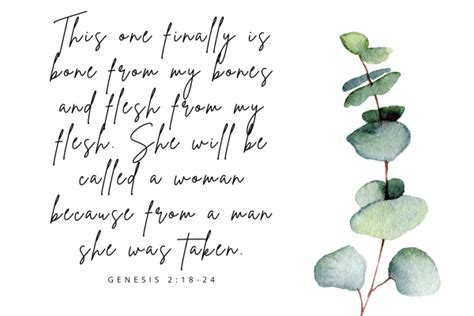 This one finally is
bone from my bones
and flesh from my
flesh. She will be
called a woman
because from a man
she was taken.
GENESIS 2:18-24